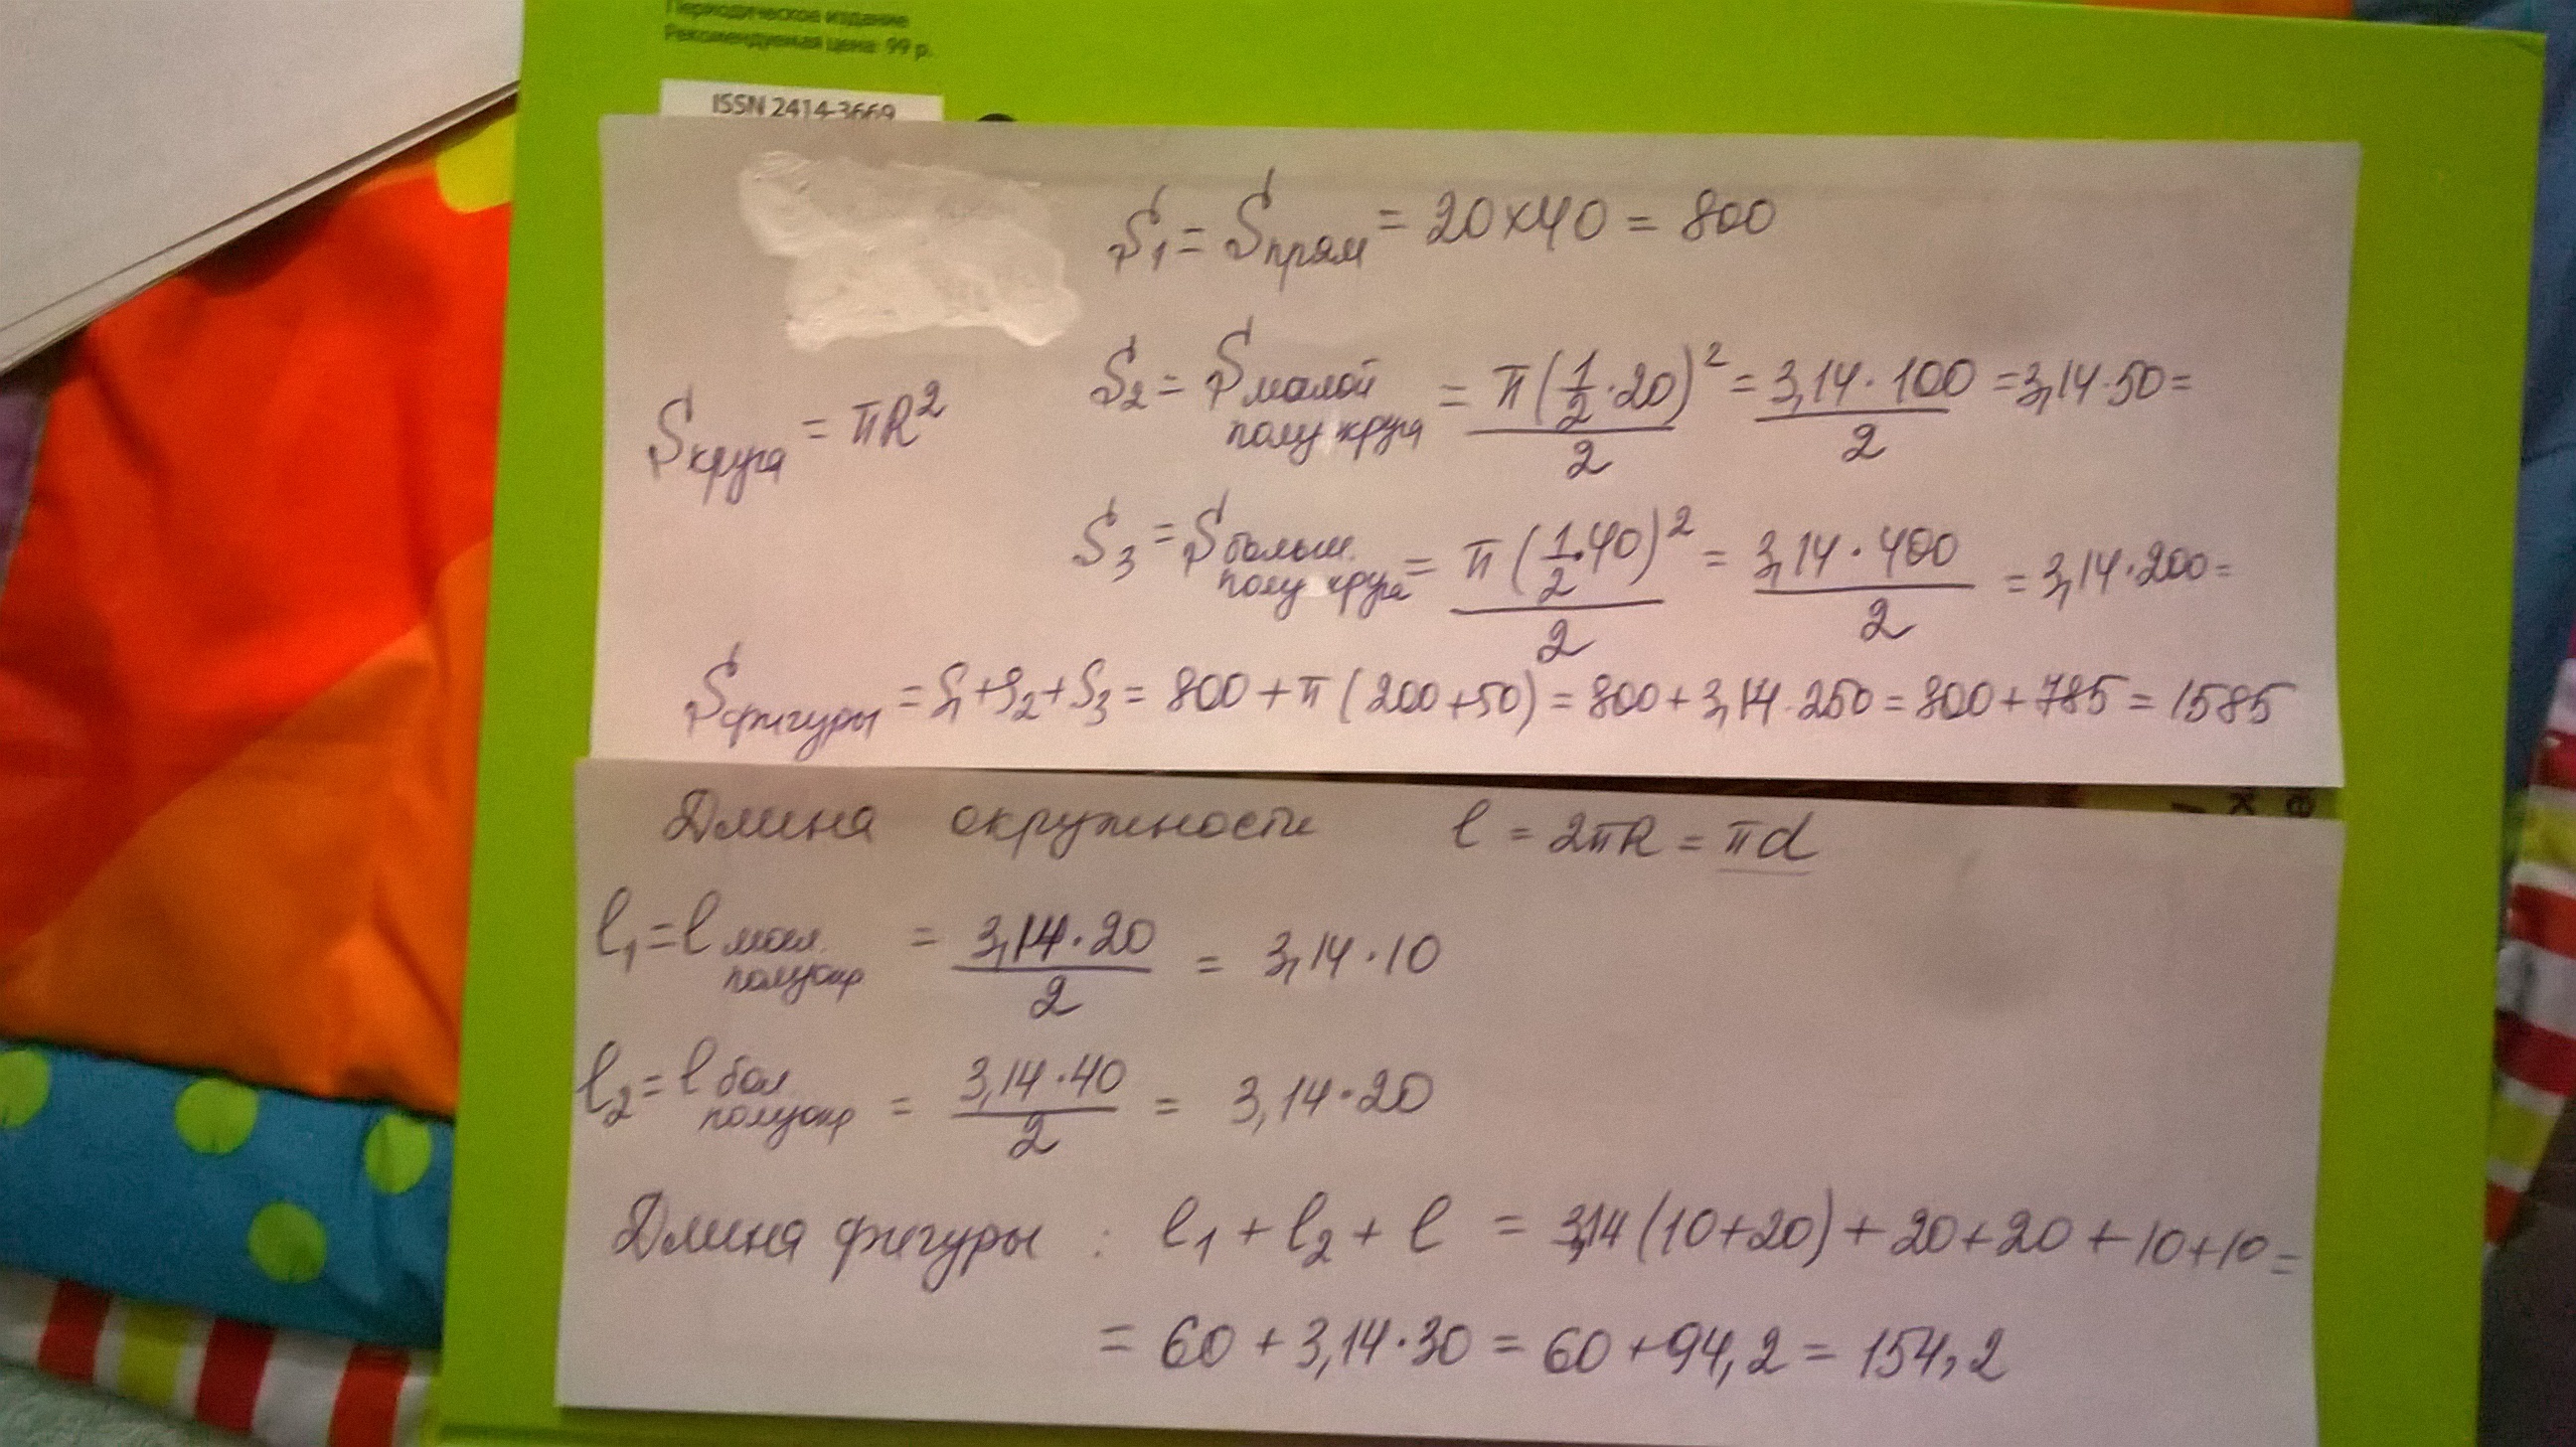 Периодическое издание
Рекомендуемая цена: 99 р.
ISSN 2414-3669
S₁ = Sпрям = 20×40 = 800
Sкруга = πR²
S₂ = Sмалой полукруга = π(1/2·20)²/2 = 3,14·100/2 = 3,14·50 =
S₃ = Sбольш. полукруга = π(1/2·40)²/2 = 3,14·400/2 = 3,14·200 =
Sфигуры = S₁+S₂+S₃ = 800+π(200+50) = 800+3,14·250 = 800+785 = 1585
Длина окружности l = 2πR = πd
l₁ = l мал. полуокр = 3,14·20/2 = 3,14·10
l₂ = l бол полуокр = 3,14·40/2 = 3,14·20
Длина фигуры : l₁ + l₂ + l = 3,14(10+20)+20+20+10+10 =
= 60 + 3,14·30 = 60 + 94,2 = 154,2